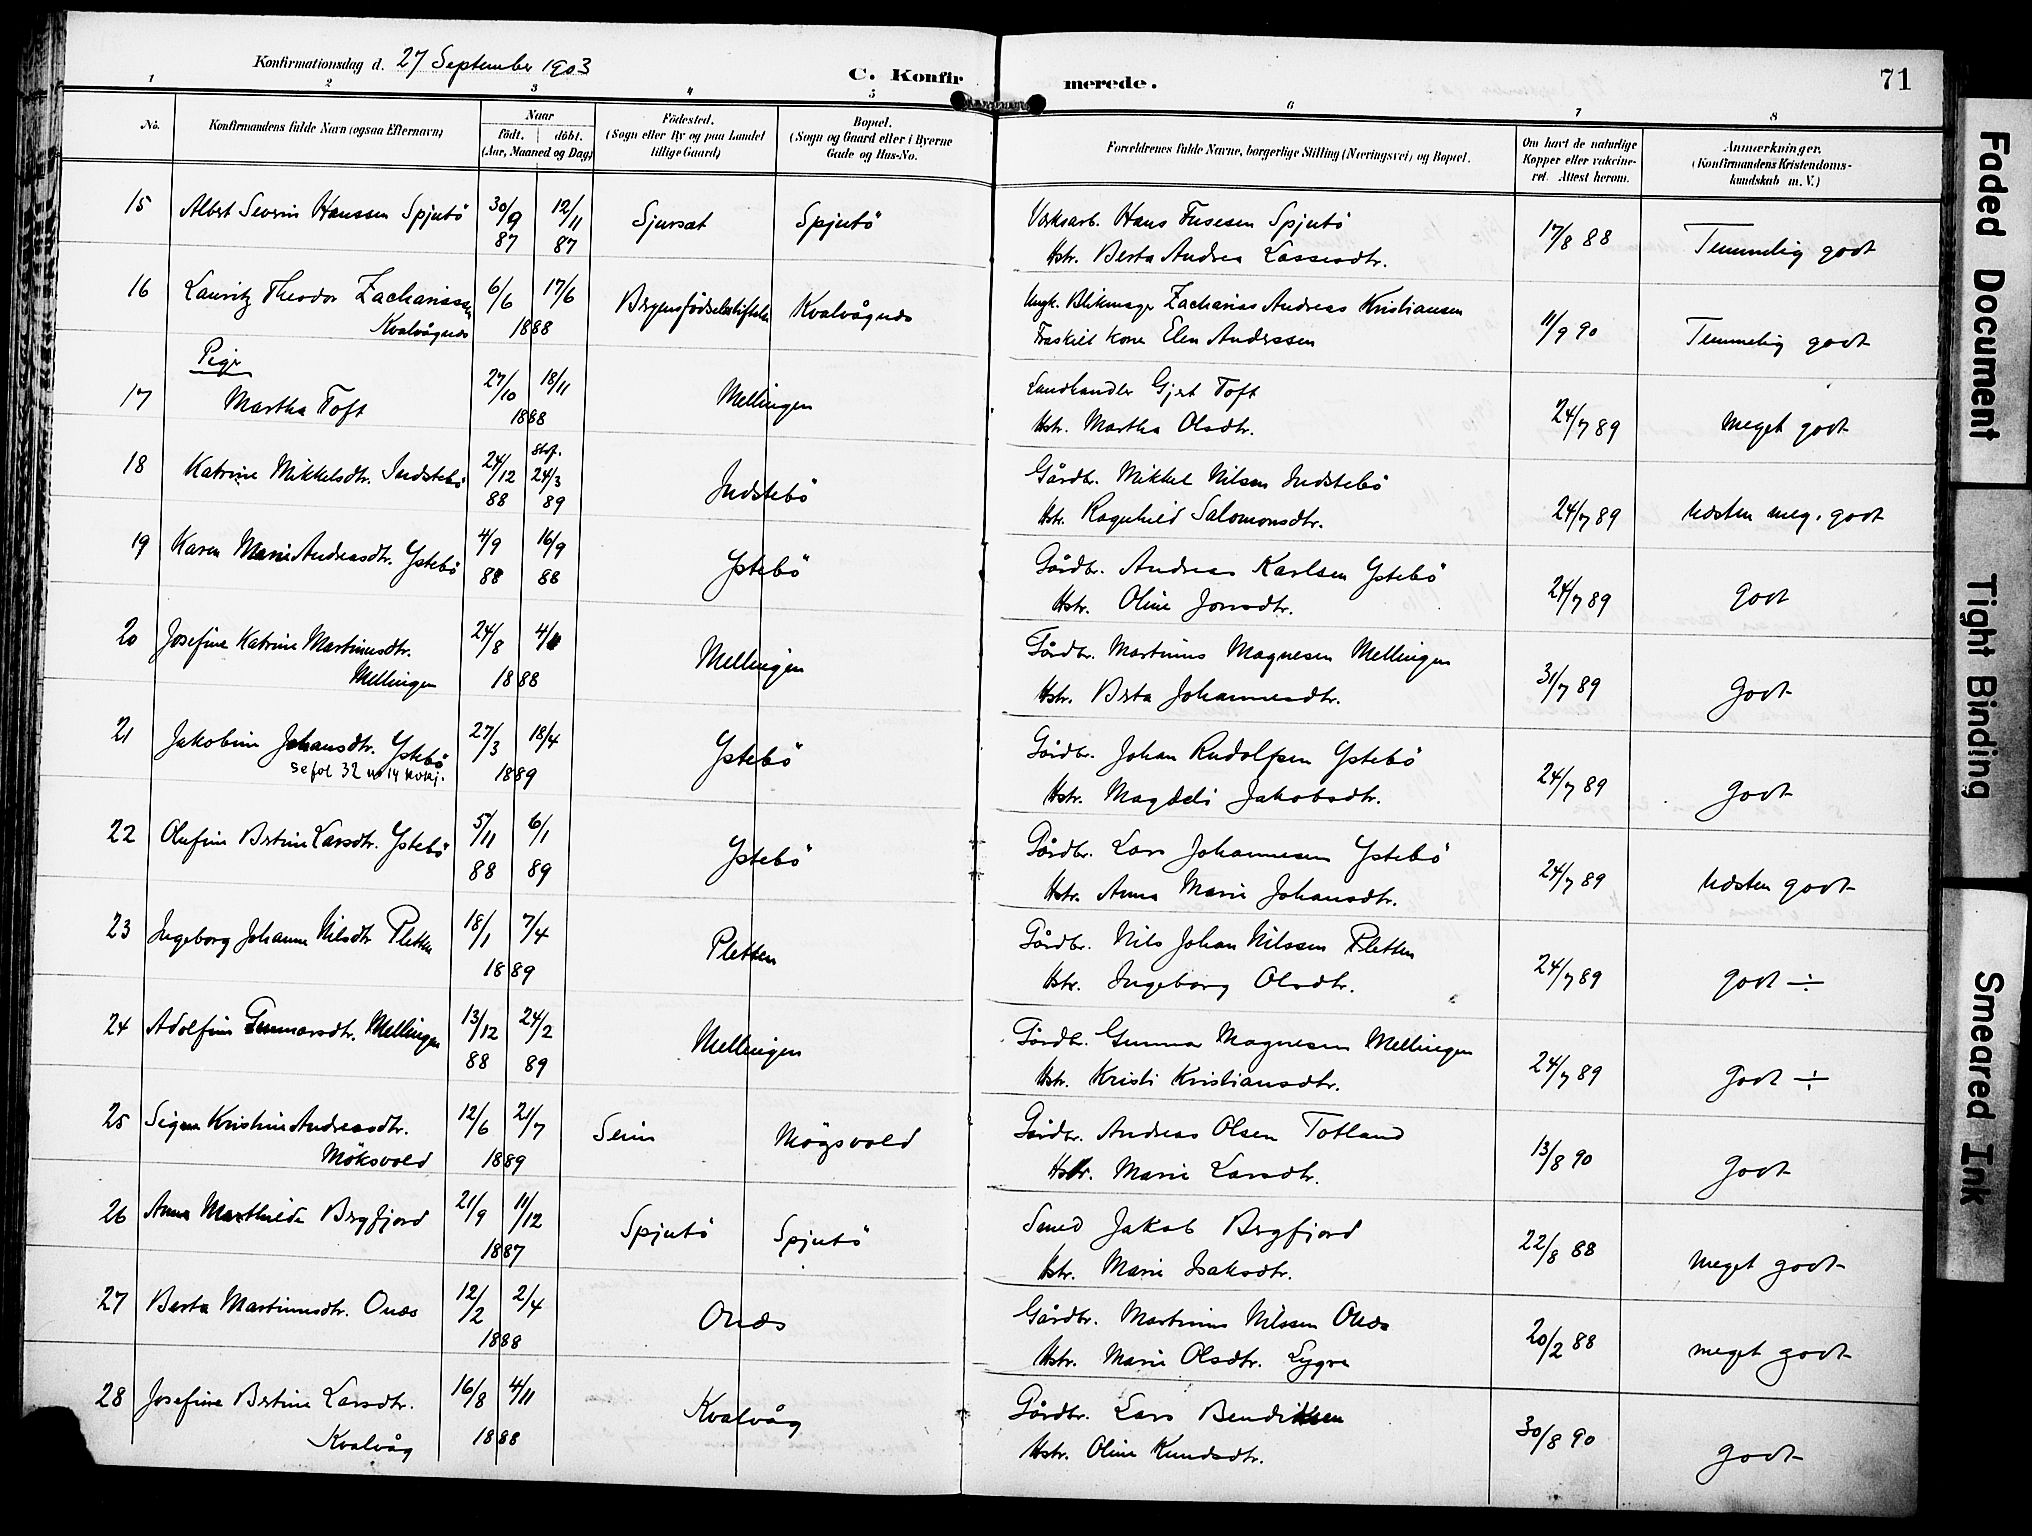 Konfirmationsdag d. 27 September 1903
C. Konfirmerede.
71
1 2 3 4 5 6 7 8
No.
Konfirmandens fulde Navn (ogsaa Efternavn)
Naar
født. døbt.
(Aar, Maaned og Dag)
Fødested.
(Sogn eller By og paa Landet
tillige Gaard)
Bopæl.
(Sogn og Gaard eller i Byerne
Gade og Hus-No.
Forældrenes fulde Navne, borgerlige Stilling (Næringsvei) og Bopæl.
Om havt de naturlige
Kopper eller vakcine-
ret. Attest herom.
Anmærkninger.
(Konfirmandens Kristendoms-
kundskab m. V.)
15 Albert Severin Hanssen Spjutö 30/9 87 12/11 87 Sjursæt Spjutö Hans Fusesen Spjutö 17/8 88 Temmelig godt
Hstr. Berta Andrea Lassesdtr.
16 Lauritz Theodor Zachariassen 6/6 17/6 Bergens födselsstiftelse Kvalvågnes Ungk. Blikmager Zacharias Andreas Kristiansen 11/9 90 Temmelig godt
Kvalvågnes 1888 Fraskilt Kone Elen Anderssen
Piger
17 Martha Toft 27/10 18/11 1888 Mellingen Landhandler Gjert Toft 24/7 89 meget godt
Hstr. Martha Olsdtr.
18 Katrine Mikkelsdtr. Indstebö 24/12 88 Stef. 24/3 89 Indstebö Gårdbr. Mikkel Nilsen Indstebö 24/7 89 Næsten meg. godt
Hstr. Ragnhild Salomonsdtr.
19 Karen Marie Andreasdtr. Ystebö 4/9 88 16/9 88 Ystebö Gårdbr. Andreas Karlsen Ystebö 24/7 89 godt
Hstr. Oline Jonsdtr.
20 Josefine Katrine Martinusdtr. 24/8 4/11 Mellingen Gårdbr. Martinus Magnesen Mellingen 31/7 89 godt
Mellingen 1888 Hstr. Berta Johannesdtr.
21 Jakobine Johansdtr. Ystebö 27/3 18/4 Ystebö Gårdbr. Johan Rudolfsen Ystebö 24/7 89 godt
Se fol 32 no 14 1889 Hstr. Magdeli Jakobsdtr.
22 Olufine Bertine Larsdtr. Ystebö 5/11 88 6/1 89 Ystebö Gårdbr. Lars Johannesen Ystebö 24/7 89 Næsten godt
Hstr. Anna Marie Johansdtr.
23 Ingeborg Johanne Nilsdtr Pletten 18/1 7/4 1889 Pletten Gårdbr. Nils Johan Nilssen Pletten 24/7 89 godt ÷
Hstr. Ingeborg Olsdtr.
24 Adolfine Gunnarsdtr. Mellingen 13/12 88 24/2 89 Mellingen Gårdbr. Gunnar Magnesen Mellingen 24/7 89 godt ÷
Hstr. Kristi Kristiansdtr.
25 Signe Kristine Andreasdtr. 12/6 21/7 Seim Mögsvold Gårdbr. Andreas Olsen Totland 13/8 90 godt
Möksvold 1889 Hstr. Marie Larsdtr.
26 Anna Marthilde Bergfjord 21/9 11/12 1887 Spjutö Spjutö Smed Jakob Bergfjord 22/8 88 meget godt
Hstr. Marie Isaksdtr.
27 Berta Martinusdtr. Onæs 12/2 2/4 1888 Onæs Gårdbr. Martinus Nilssen Onæs 20/2 88 meget godt
Hstr. Marie Olsdtr. Lygre
28 Josefine Bertine Larsdtr. 16/8 4/11 Kvalvåg Gårdbr. Lars Bendiksen 30/8 90 godt
Kvalvåg 1888 Hstr. Oline Knudsdtr.
Faded Document
Tight Binding
Smeared Ink